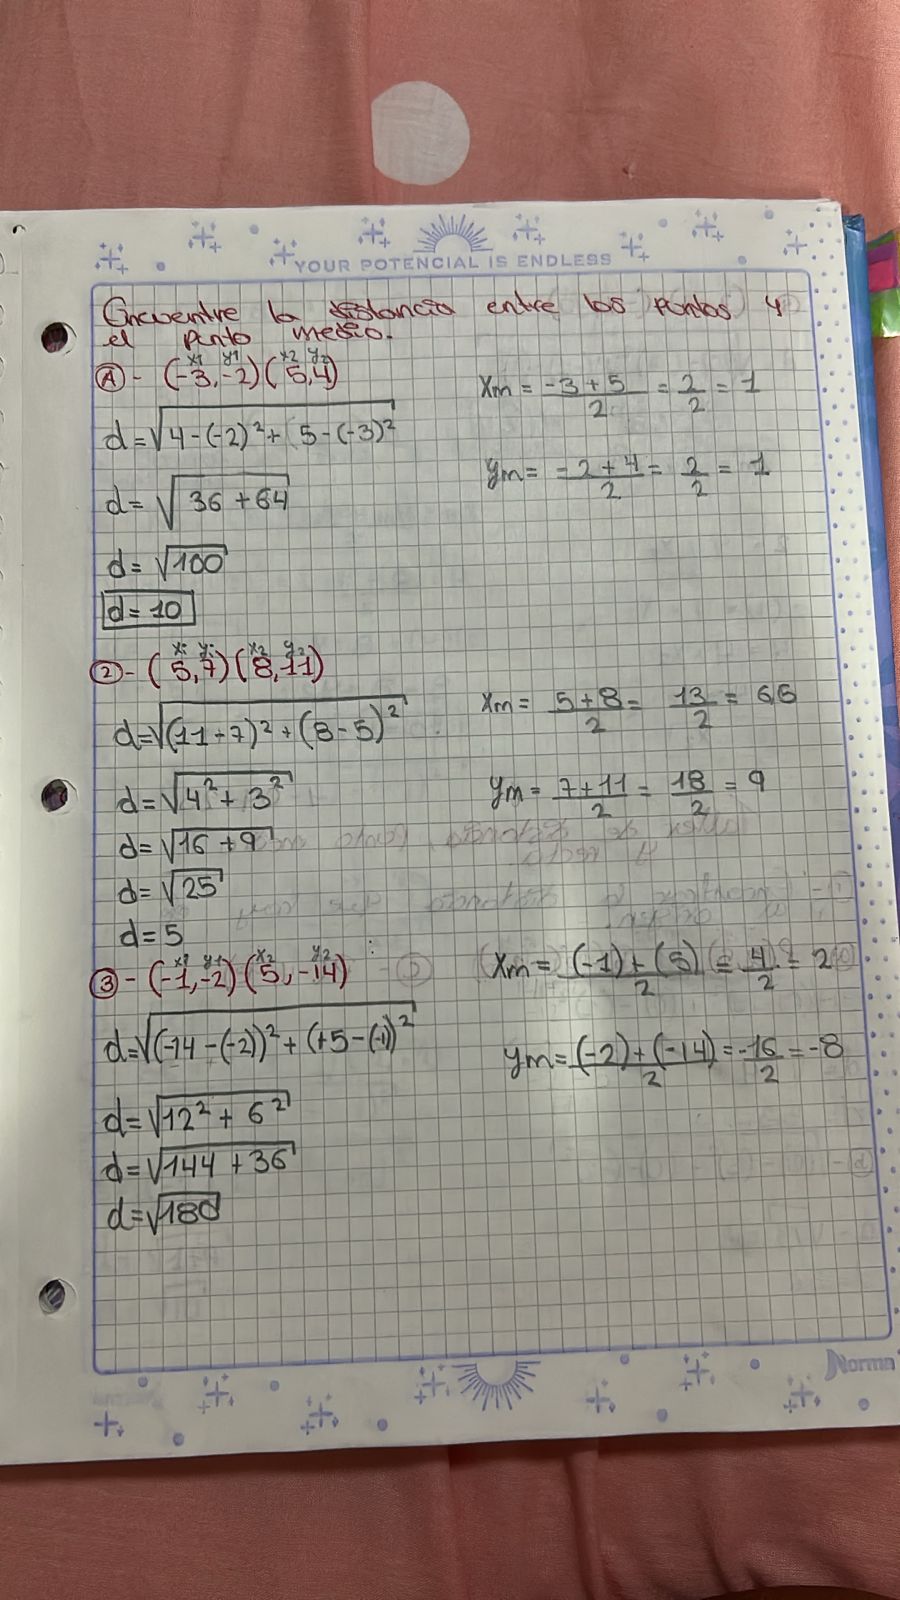 YOUR POTENCIAL IS ENDLESS
Encuentre la distancia entre los puntos y
el punto medio.
x1 y1 x2 y2
A - (-3,-2)(5,4)
d=√4-(-2)²+(5-(-3)²
d=√36+64
d=√100
d=10
Xm = -3+5/2 = 2/2 = 1
Ym= -2+4/2 = 2/2 = 1
x1 y1 x2 y2
2 - (5,7)(8,11)
d=√(11-7)²+(8-5)²
d=√4²+3²
d=√16+9
d=√25
d=5
Xm= 5+8/2 = 13/2 = 6,5
Ym= 7+11/2 = 18/2 = 9
x1 y1 x2 y2
3 - (-1,-2)(5,-14)
d=√(-14-(-2))²+(+5-(-1)²
d=√12²+6²
d=√144+36
d=√180
Xm= (-1)+(5)/2 = 4/2 = 2
Ym=(-2)+(-14)/2=-16/2=-8
Norma